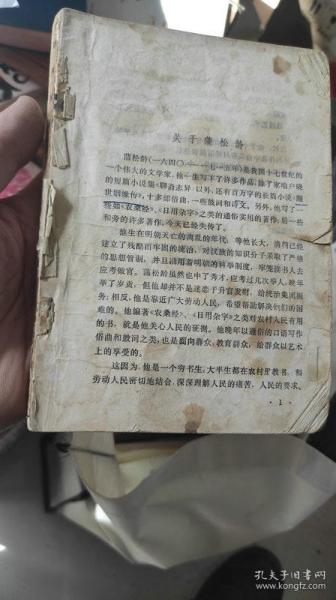 关于蒲松龄
蒲松龄(一六四〇——一七一五年)是我国十七世纪的
一个伟大的文学家，他一生写下了许多作品，除了家喻户晓
的短篇小说集《聊斋志异》以外，还有百万字的长篇小说《醒
世姻缘传》，十多部俗曲，一些鼓词和诗文。另外，他写了一
些如《农桑经》、《日用杂字》之类的通俗实用的著作，后一些
和旁的许多著作，今天已经失传了。
他生在明朝灭亡的离乱的年代，等他长大，清朝已经
建立了残酷而牢固的统治，对汉族的知识分子采取了严格
的思想管制，并且沿用着明朝的科举制度，牢笼读书人去
应考做官。蒲松龄虽然也中了秀才，应考过几次举人，晚年
举了岁贡，但他却并不是迷恋于升官发财，给统治集团服
务；相反，他是靠近广大劳动人民，希望帮助解决他们的困
难的。他编著《农桑经》、《日用杂字》之类对农村人民有用
的书，就是他关心人民的证据。他晚年以通俗的口语写作
俗曲和鼓词之类，也是面向群众，教育群众，给群众以艺术
上的享受的。
这因为，他是一个穷书生，大半生都在农村里教书，和
劳动人民密切地结合，深深理解人民的痛苦，人民的要求、
· 1 ·
孔夫子旧书网